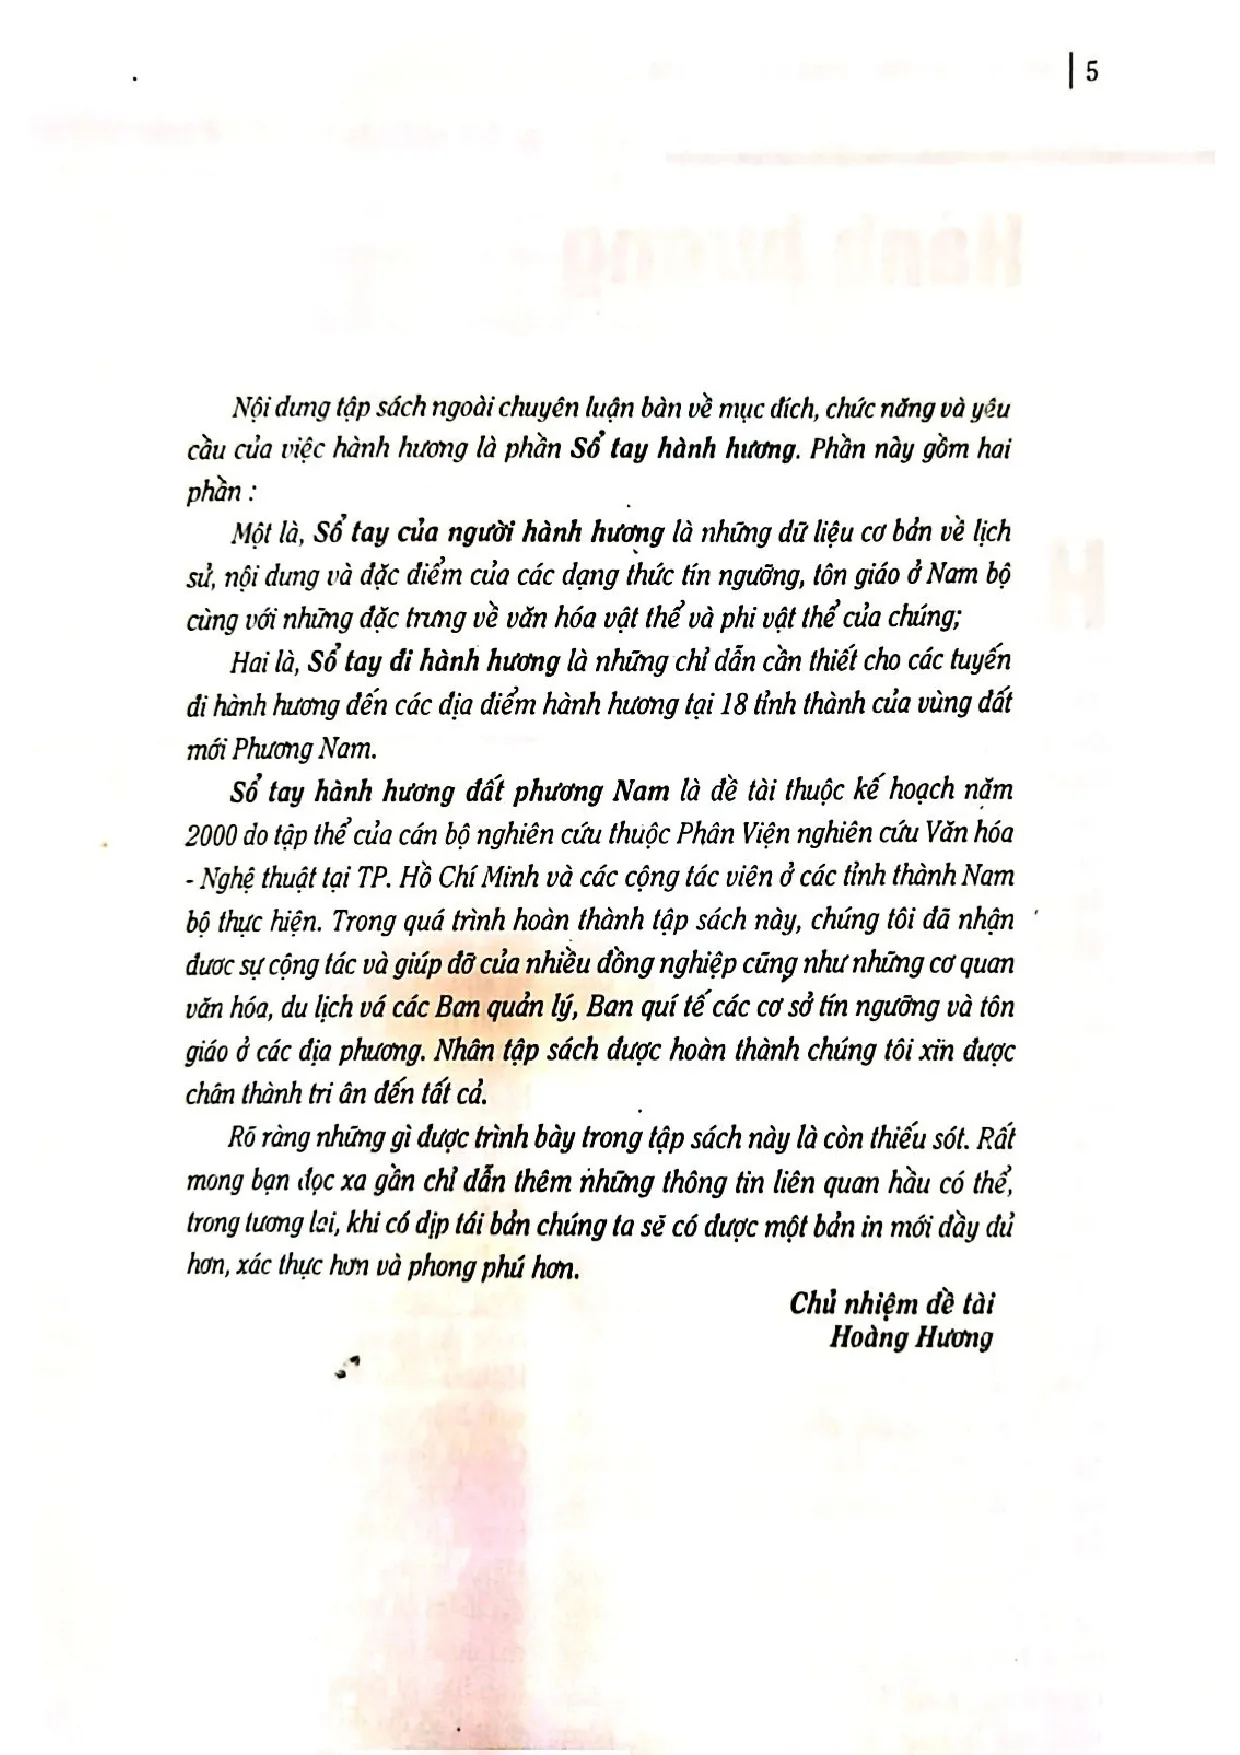 | 5
Nội dung tập sách ngoài chuyên luận bàn về mục đích, chức năng và yêu
cầu của việc hành hương là phần Sổ tay hành hương. Phần này gồm hai
phần :
Một là, Sổ tay của người hành hương là những dữ liệu cơ bản về lịch
sử, nội dung và đặc điểm của các dạng thức tín ngưỡng, tôn giáo ở Nam bộ
cùng với những đặc trưng về văn hóa vật thể và phi vật thể của chúng;
Hai là, Sổ tay đi hành hương là những chỉ dẫn cần thiết cho các tuyến
đi hành hương đến các địa điểm hành hương tại 18 tỉnh thành của vùng đất
mới Phương Nam.
Sổ tay hành hương đất phương Nam là đề tài thuộc kế hoạch năm
2000 do tập thể của cán bộ nghiên cứu thuộc Phân Viện nghiên cứu Văn hóa
- Nghệ thuật tại TP. Hồ Chí Minh và các cộng tác viên ở các tỉnh thành Nam
bộ thực hiện. Trong quá trình hoàn thành tập sách này, chúng tôi đã nhận
được sự cộng tác và giúp đỡ của nhiều đồng nghiệp cũng như những cơ quan
văn hóa, du lịch vá các Ban quản lý, Ban quí tế các cơ sở tín ngưỡng và tôn
giáo ở các địa phương. Nhân tập sách được hoàn thành chúng tôi xin được
chân thành tri ân đến tất cả.
Rõ ràng những gì được trình bày trong tập sách này là còn thiếu sót. Rất
mong bạn đọc xa gần chỉ dẫn thêm những thông tin liên quan hầu có thể,
trong tương lai, khi có dịp tái bản chúng ta sẽ có được một bản in mới đầy đủ
hơn, xác thực hơn và phong phú hơn.
Chủ nhiệm đề tài
Hoàng Hương